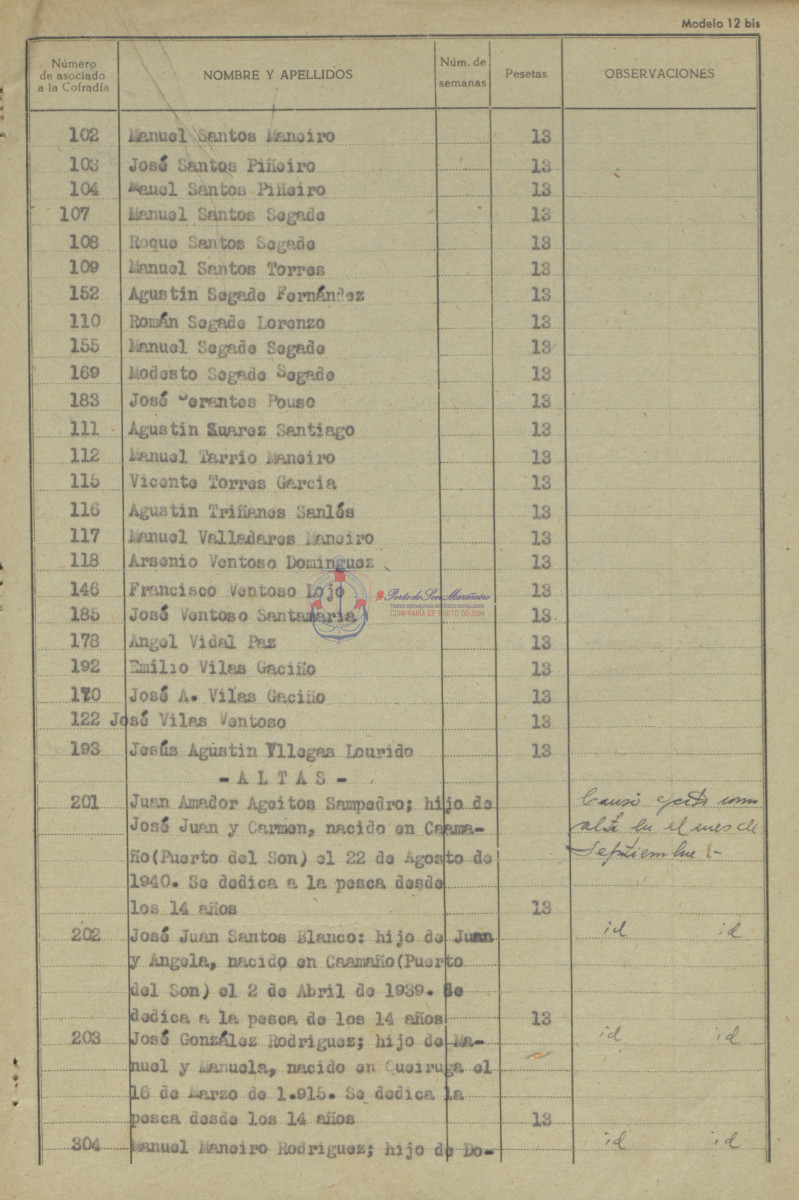 Modelo 12 bis
Número de asociado a la Cofradía NOMBRE Y APELLIDOS Núm. de semanas Pesetas OBSERVACIONES
102 Manuel Santos Maneiro 13
103 José Santos Piñeiro 13
104 Manuel Santos Piñeiro 13
107 Manuel Santos Segade 13
108 Roque Santos Segade 13
109 Manuel Santos Torres 13
152 Agustin Segade Fernández 13
110 Román Segade Lorenzo 13
155 Manuel Segade Segade 13
169 Modesto Segade Segade 13
183 José Serantes Pouso 13
111 Agustin Suarez Santiago 13
112 Manuel Tarrio Maneiro 13
115 Vicente Torres Garcia 13
116 Agustin Triñanes Sanlés 13
117 Manuel Valladares Maneiro 13
118 Arsenio Ventoso Dominguez 13
146 Francisco Ventoso Lojo 13
#Porto do Son Mariñeiro
CONFRARÍA DE PORTO DO SON
185 José Ventoso Santamaria 13
178 Angel Vidal Paz 13
192 Emilio Vilas Gaciño 13
170 José A. Vilas Gaciño 13
122 José Vilas Ventoso 13
193 Jesús Agustin Vllegas Lourido 13
- A L T A S -
201 Juan Amador Ageitos Sampedro; hijo de Causó efecto como
José Juan y Carmen, nacido en Caama- alta en el mes de
ño(Puerto del Son) el 22 de Agosto de Septiembre
1940. Se dedica a la pesca desde
los 14 años 13
202 José Juan Santos Blanco: hijo de Juan id id
y Angela, nacido en Caamaño(Puerto
del Son) el 2 de Abril de 1939. Se
dedica a la pesca de los 14 años 13
203 José González Rodriguez; hijo de Ma- id id
nuel y Manuela, nacido en Queiruga el
16 de Marzo de 1.915. Se dedica la
pesca desde los 14 años 13
304 Manuel Maneiro Rodriguez; hijo de Do- id id